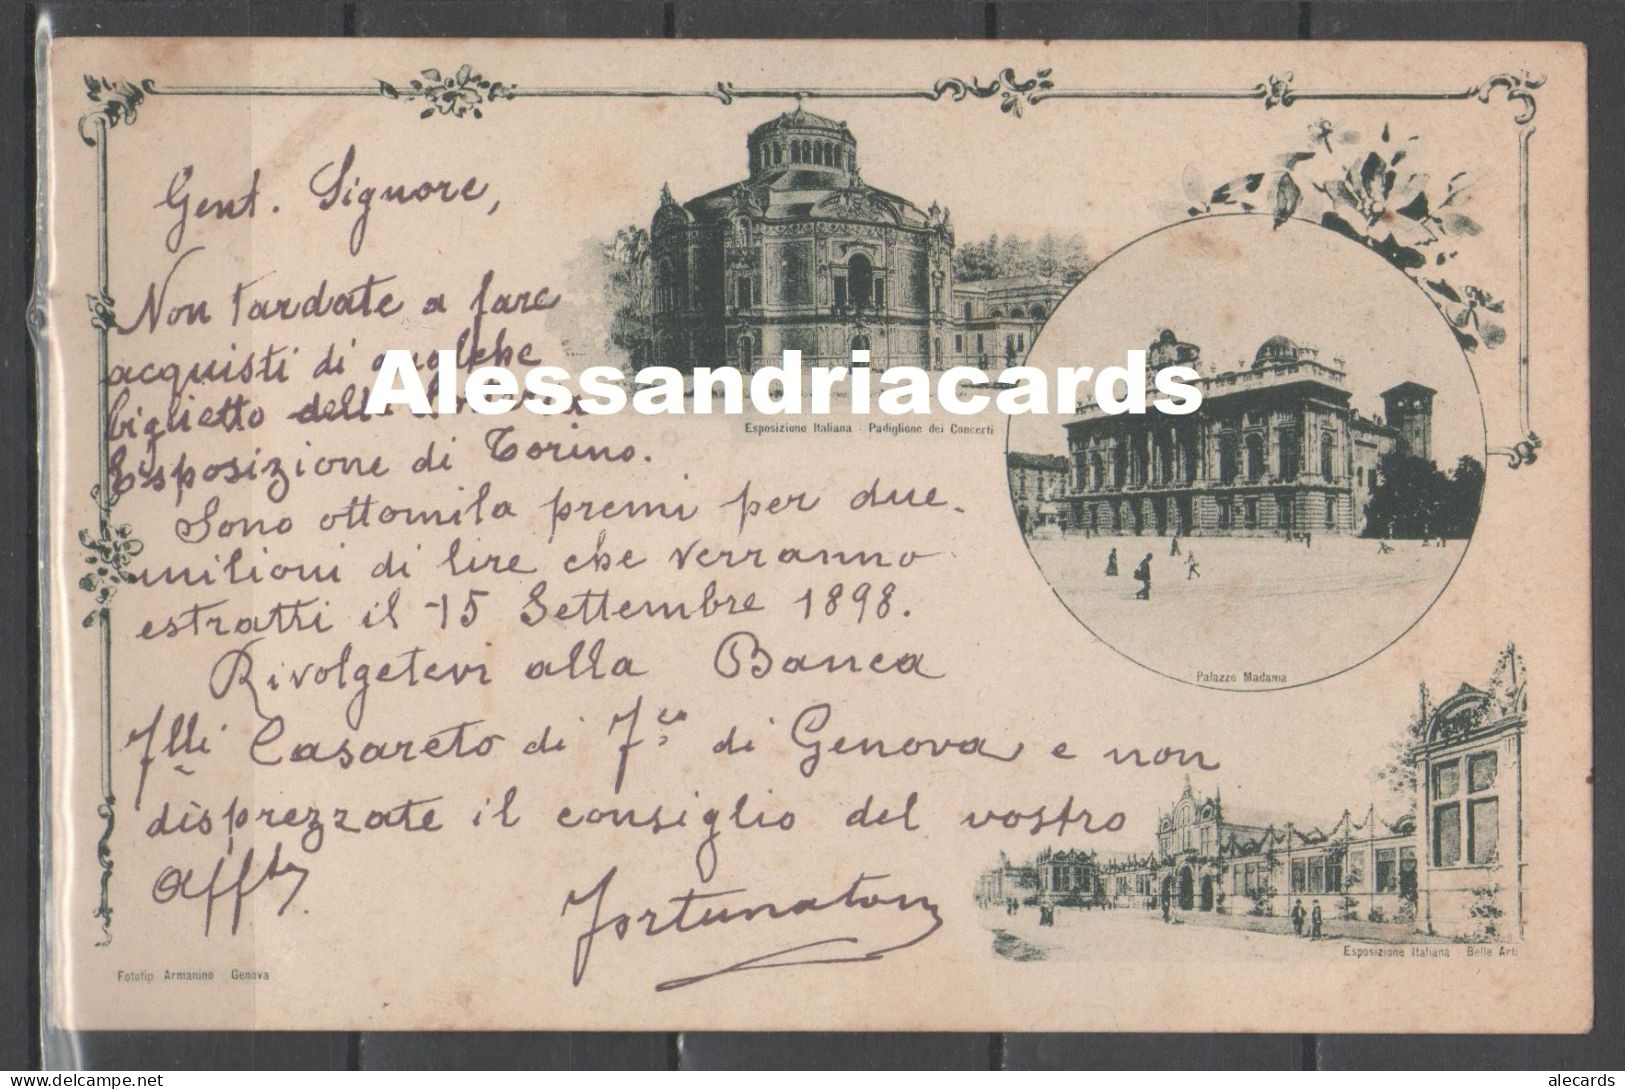 Gent. Signore,
Non tardate a fare
acquisti di qualche
biglietto della
Esposizione di Torino.
Sono ottomila premi per due
milioni di lire che verranno
estratti il 15 Settembre 1898.
Rivolgetevi alla Banca
Flli Casareto di F.co di Genova e non
disprezzate il consiglio del vostro
Affto
Alessandriacards
Esposizione Italiana - Padiglione dei Concerti
Palazzo Madama
Esposizione Italiana - Belle Arti
Fototip. Armanino - Genova
alecards